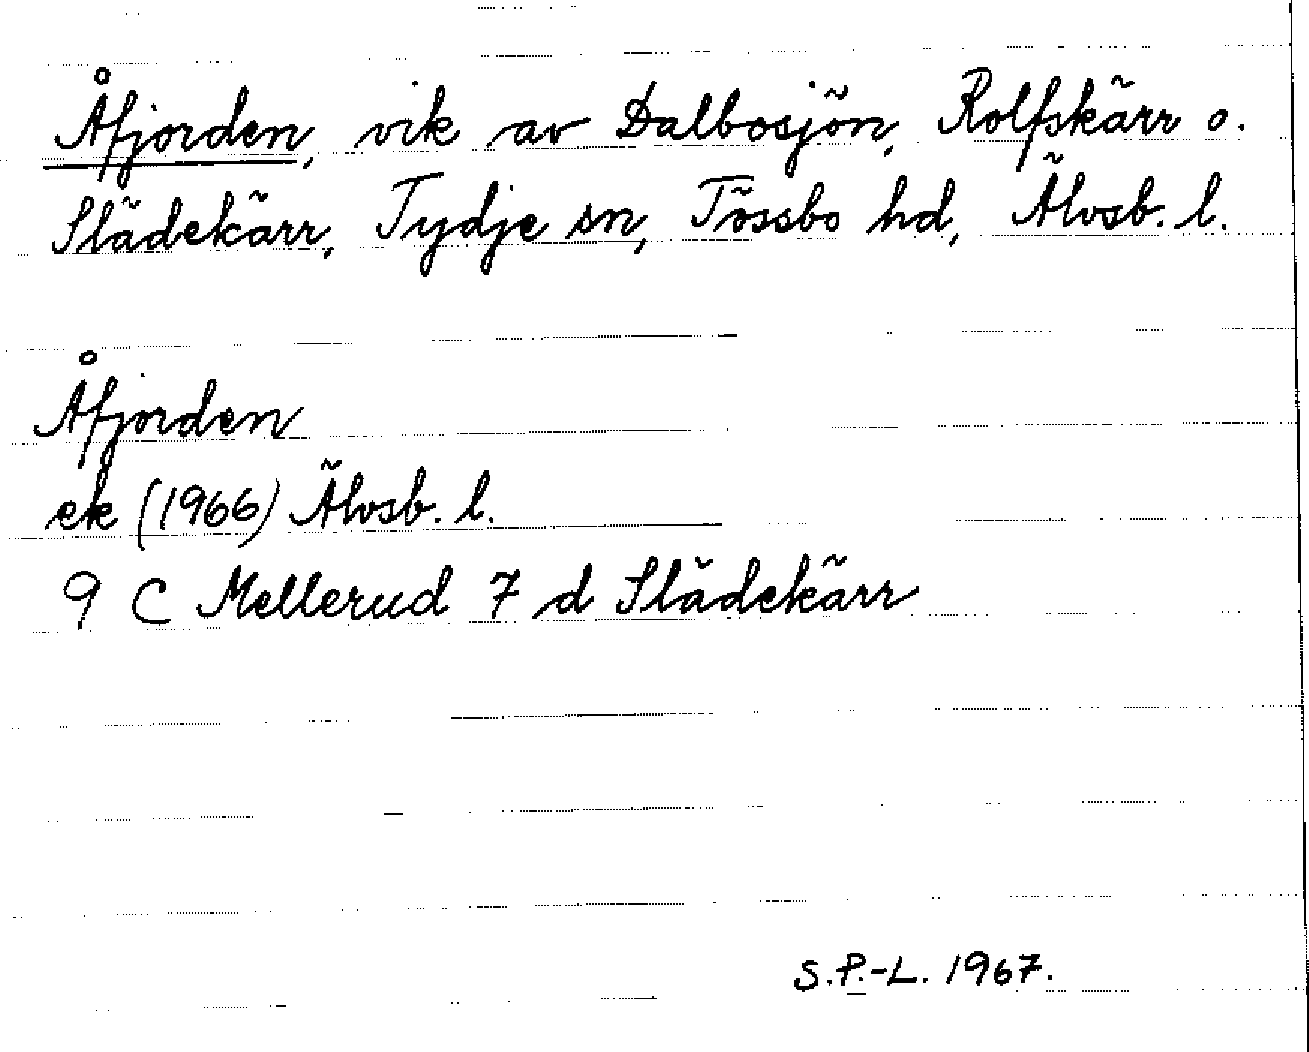 Åfjorden, vik av Dalbosjön, Rolfskärr o.
Slädekärr, Tydje sn, Tössbo hd, Älvsb. l.
Åfjorden
ek (1966) Älvsb. l.
9 C Mellerud 7 d Slädekärr
S.P.-L. 1967.